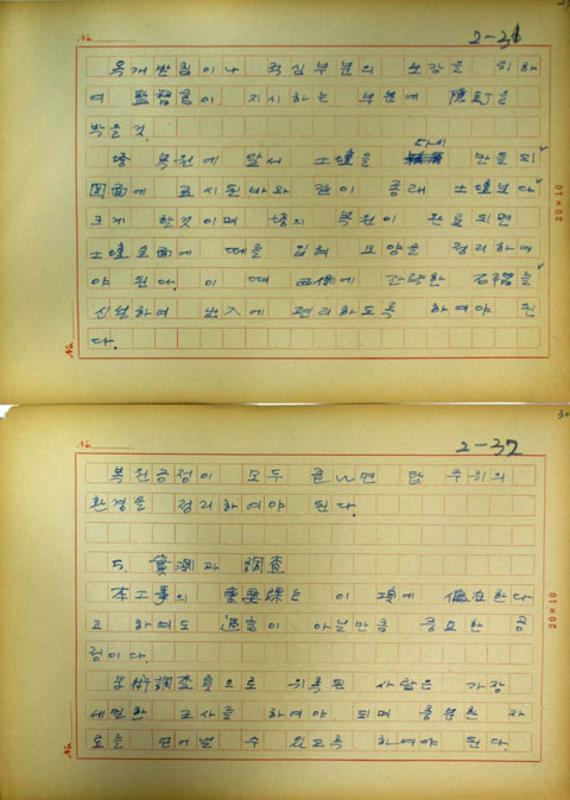 No.
2-31
옥개받침이나 핵심부분의 보강을 위하
여 監督官이 지시하는 부분에 隱釘을
박을 것.
塔 복원에 앞서 土壇을 다시 만들되
図面에 표시된바와 같이 종래 土壇보다
크게 할것이며 塔의 복원이 완료되면
土壇 표面에 떼를 입혀 모양을 정리하여
야 된다. 이 때 西側에 간략한 石階를
신설하여 出入에 편리하도록 하여야 된
다.
20×10
No.
No.
2-32
복원공정이 모두 끝나면 탑 주위의
환경을 정리하여야 된다.
5. 實測과 調査
本工事의 重要課는 이 項에 있다
고 하여도 過言이 아닐만큼 중요한 공
정이다.
学術調査員으로 위촉된 사람은 가장
세밀한 조사를 하여야 되며 충분한 자
료를 얻어낼 수 있도록 하여야 된다.
20×10
No.